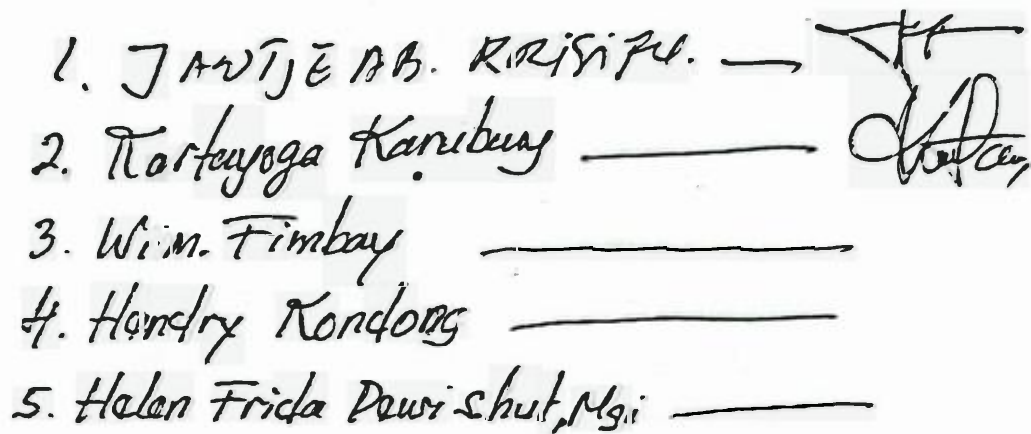 1. JANTJE AB. RRISIFU. —
2. Kartuyoga Karubuy —
3. Wim. Fimbay —
4. Hendry Kondong —
5. Helen Frida Dewi —